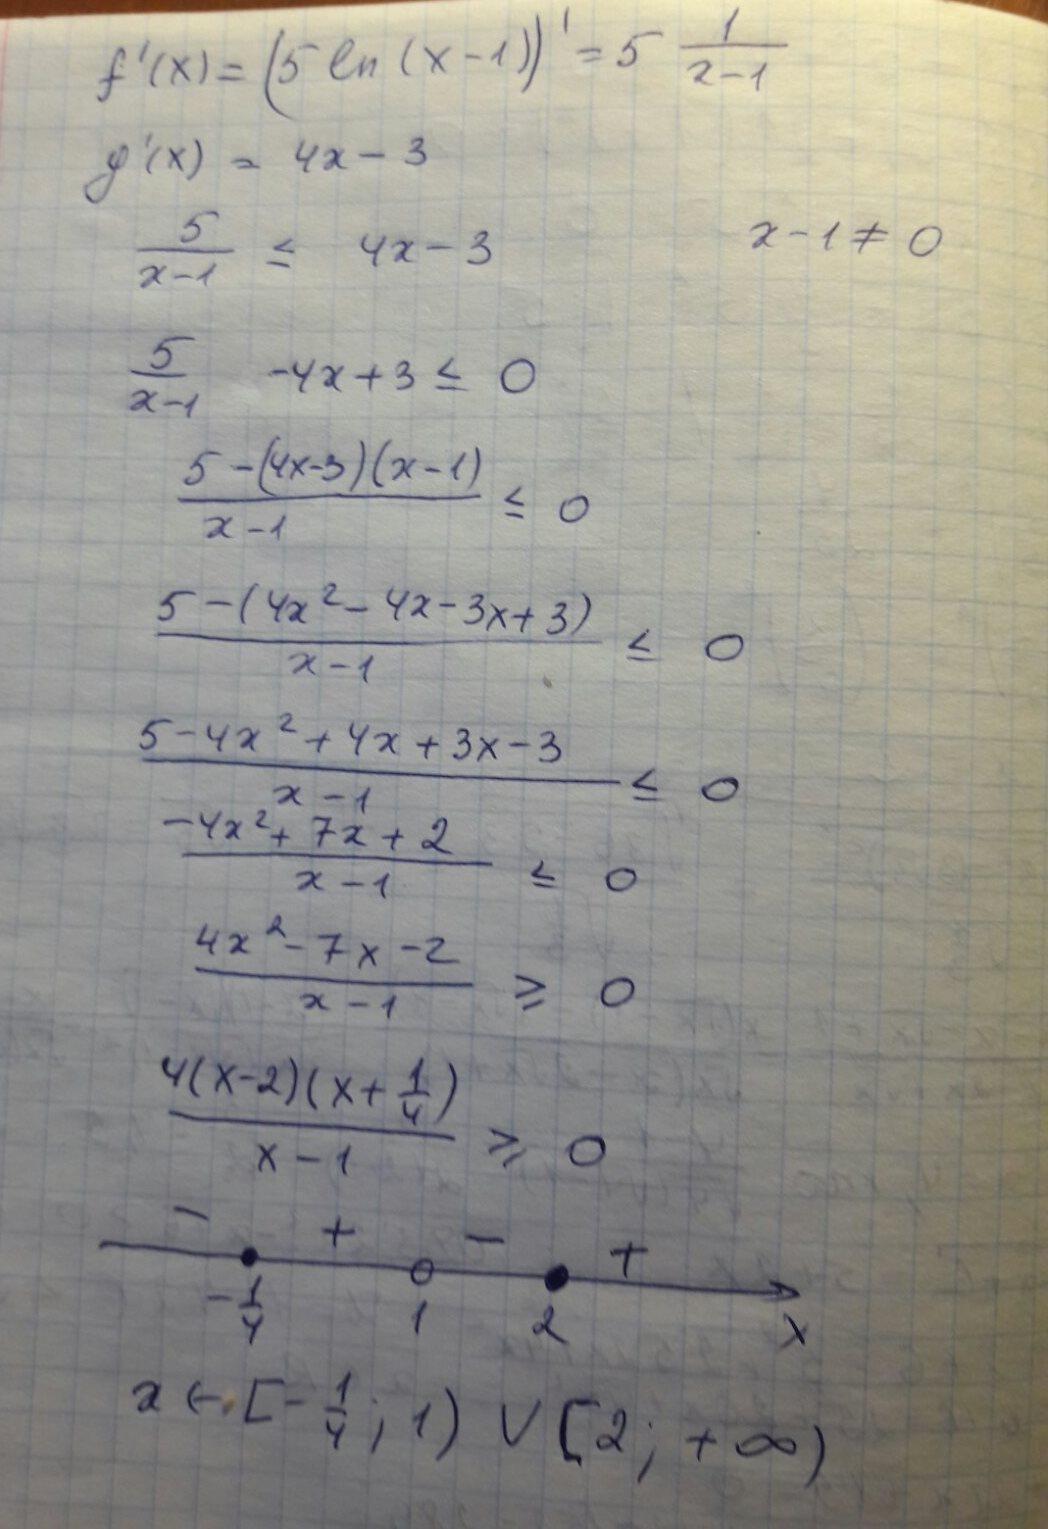 f'(x) = (5 ln (x-1))' = 5 1/(x-1)
g'(x) = 4x - 3
5/(x-1) ≤ 4x - 3 x - 1 ≠ 0
5/(x-1) -4x + 3 ≤ 0
(5 - (4x-3)(x-1))/(x-1) ≤ 0
(5 - (4x² - 4x - 3x + 3))/(x-1) ≤ 0
(5 - 4x² + 4x + 3x - 3)/(x-1) ≤ 0
(-4x² + 7x + 2)/(x-1) ≤ 0
(4x² - 7x - 2)/(x-1) ≥ 0
(4(x-2)(x + 1/4))/(x-1) ≥ 0
- + - +
-1/4 1 2 x
x ∈ [-1/4; 1) ∪ [2; +∞)